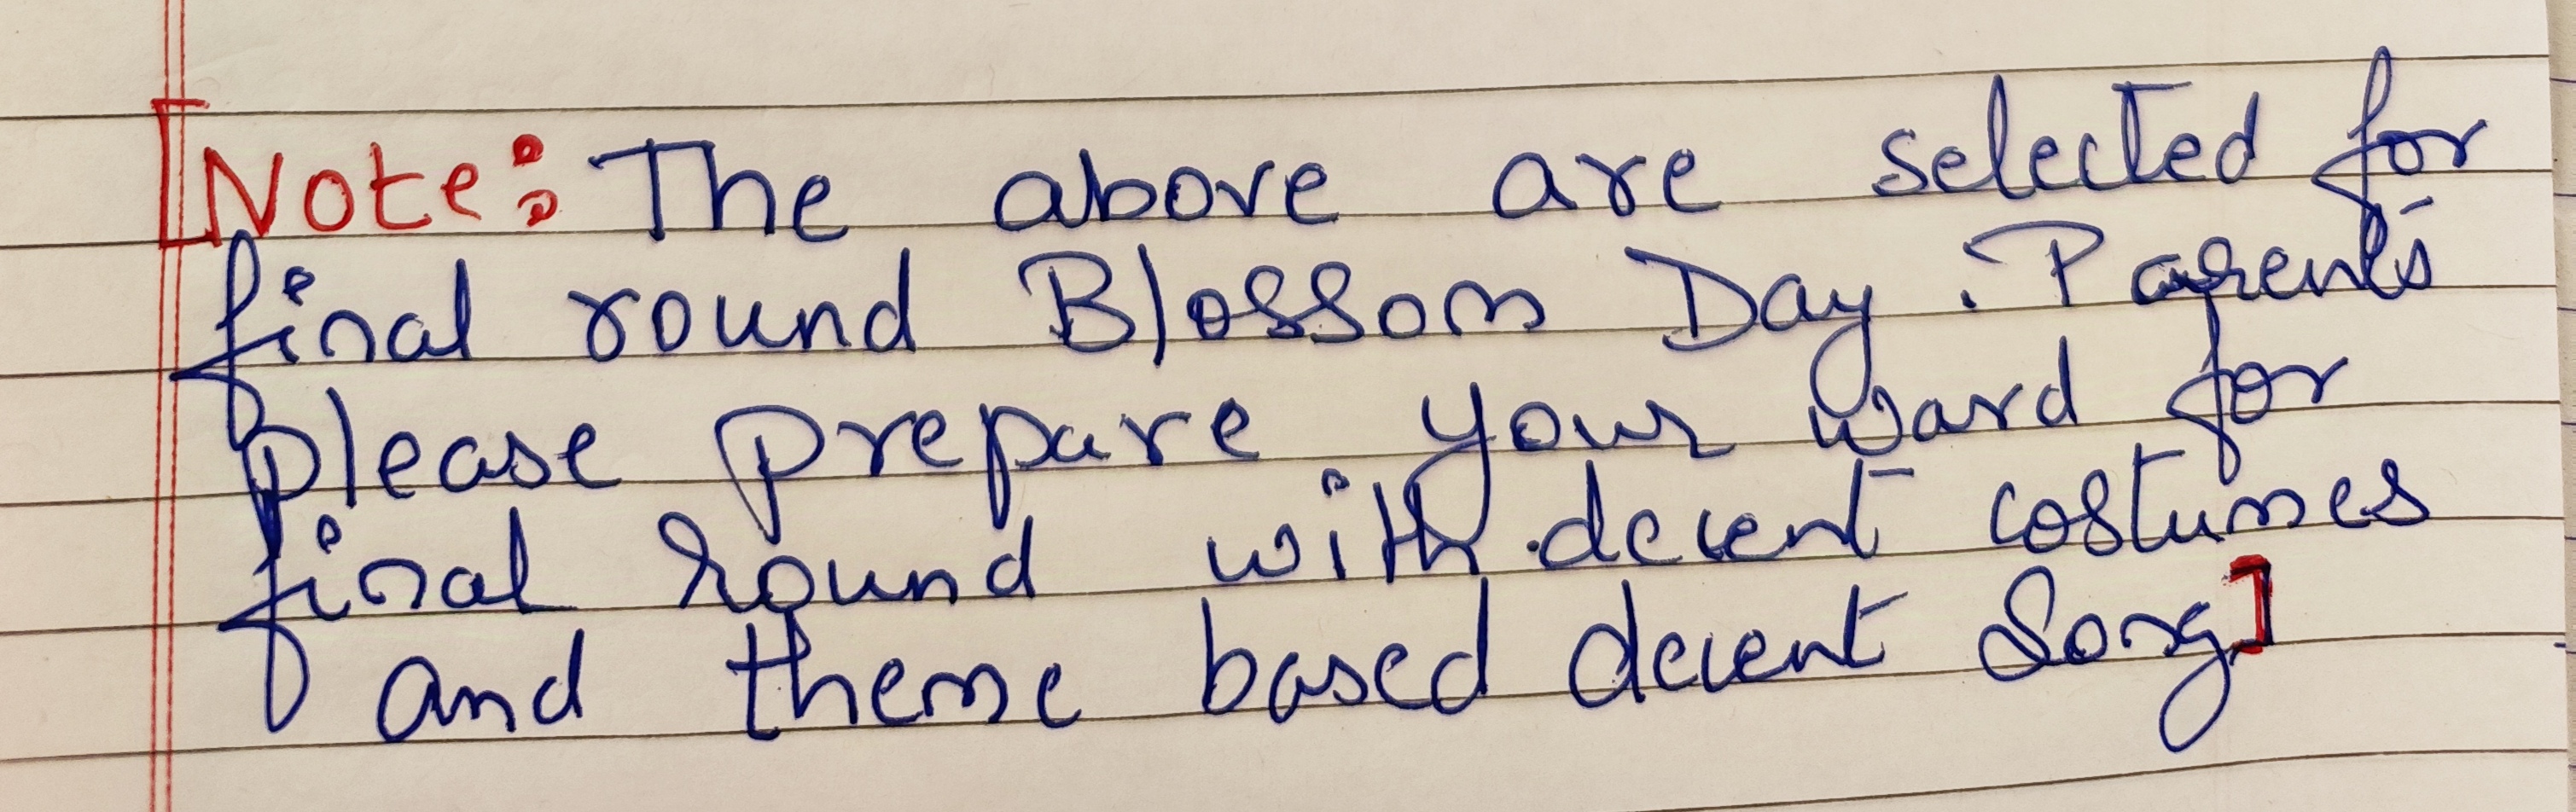 [Note: The above are selected for
final round Blossom Day. Parents
please prepare your ward for
final round with decent costumes
and theme based decent Song]